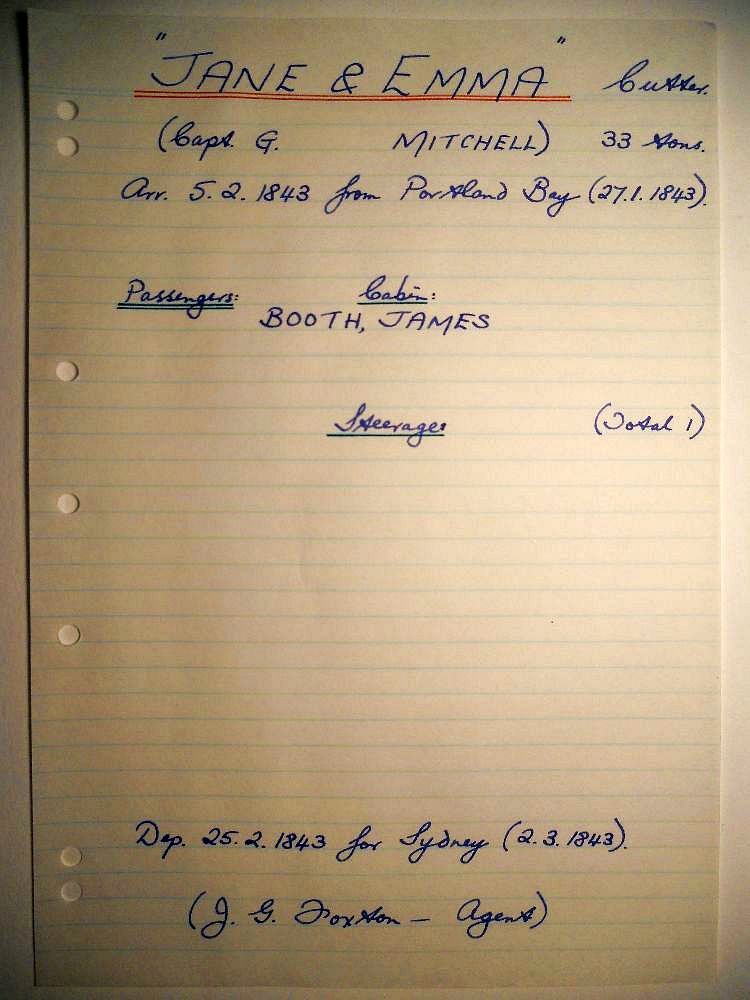 "JANE & EMMA" Cutter.
(Capt. G. MITCHELL) 33 tons.
Arr. 5.2.1843 from Portland Bay (27.1.1843).
Passengers: Cabin:
BOOTH, JAMES
Steerage: (Total 1)
Dep. 25.2.1843 for Sydney (2.3.1843).
(J. G. Foxton — Agent)